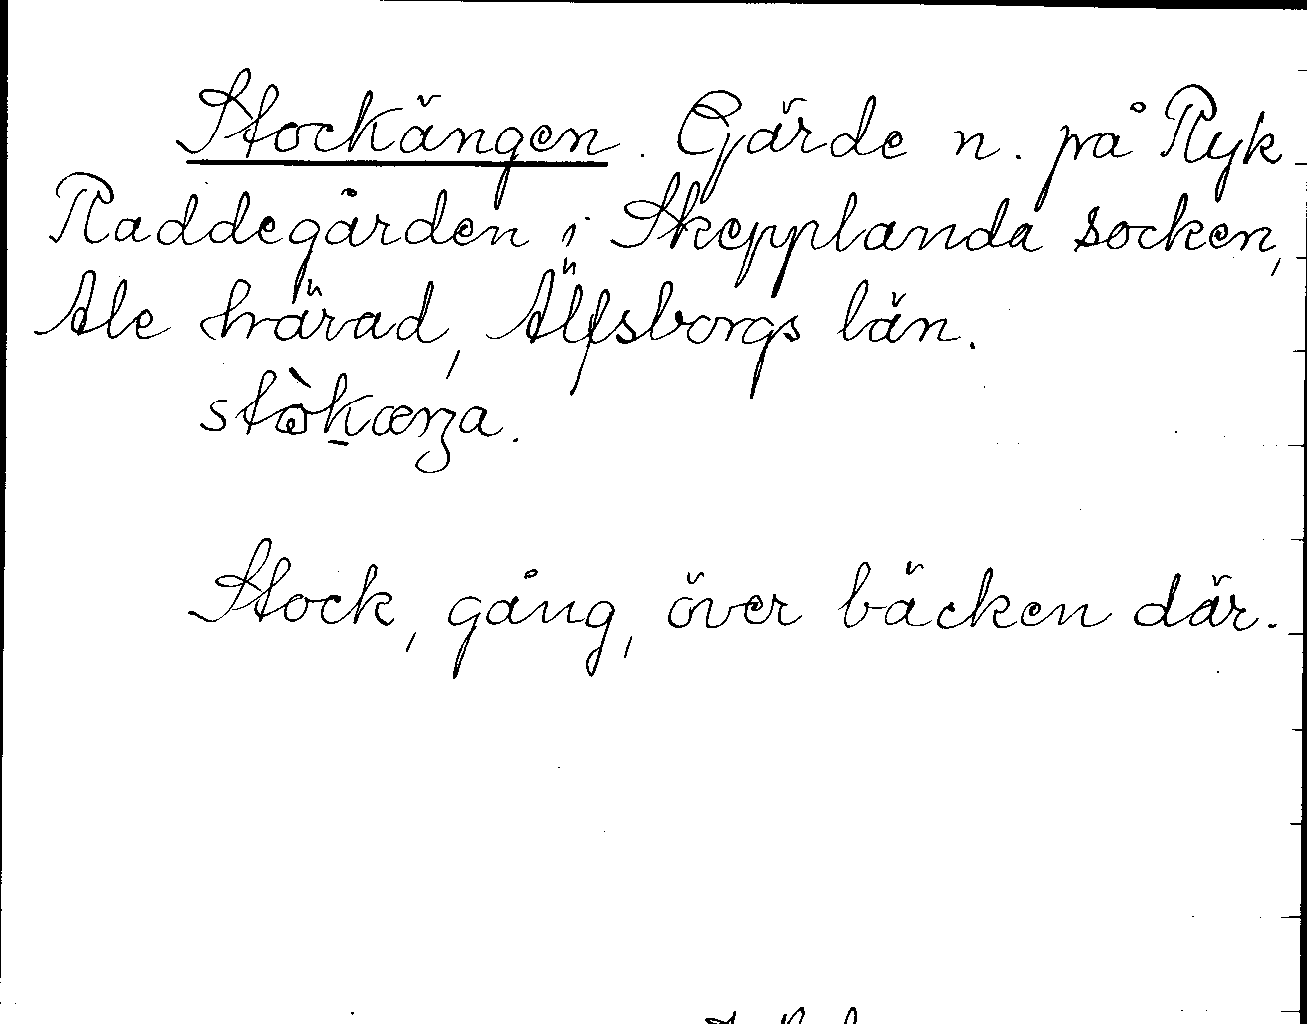 Stockängen. Gärde n. på Ryk
Raddegården i Skepplanda socken,
Ale härad, Älfsborgs län.
stòk̲æŋa.
Stock, gång, över bäcken där.